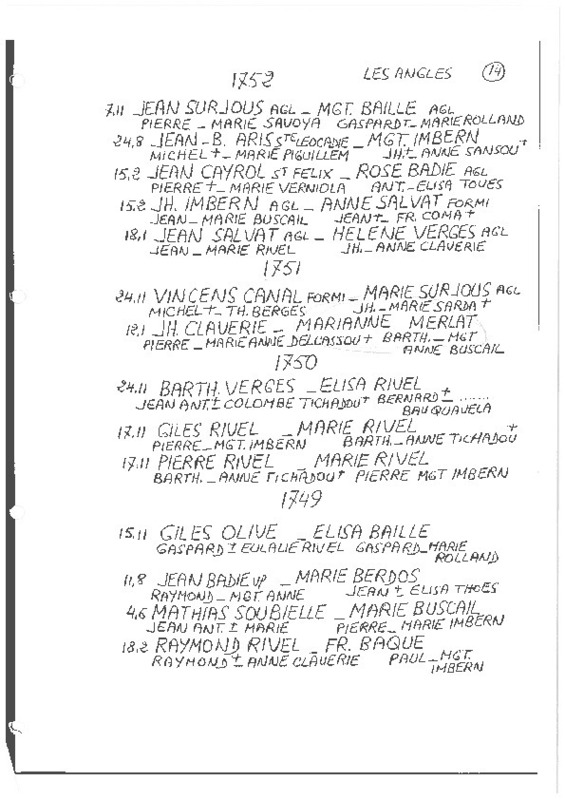 1752 LES ANGLES 14
7.11 JEAN SURJOUS AGL _ MGT. BAILLE AGL
PIERRE _ MARIE SAVOYA GASPARD+ _ MARIE ROLLAND
24,8 JEAN _ B. ARIS STE LEOCADIE _ MGT. IMBERN
MICHEL + _ MARIE PIGUILLEM JH+ _ ANNE SANSOU+
15,2 JEAN CAYROL ST FELIX _ ROSE BADIE AGL
PIERRE + _ MARIE VERNIOLA ANT _ ELISA TOUES
15.2 JH. IMBERN AGL _ ANNE SALVAT FORMI
JEAN _ MARIE BUSCAIL JEAN+ _ FR. COMA +
18,1 JEAN SALVAT AGL _ HELENE VERGES AGL
JEAN _ MARIE RIVEL JH. _ ANNE CLAVERIE
1751
24.11 VINCENS CANAL FORMI _ MARIE SURJOUS AGL
MICHEL + _ TH. BERGES JH. _ MARIE SARDA +
12,1 JH. CLAVERIE _ MARIANNE MERLAT
PIERRE _ MARIE ANNE DELCASSOU + BARTH. _ MGT
ANNE BUSCAIL
1750
24.11 BARTH. VERGES _ ELISA RIVEL
JEAN ANT. ± COLOMBE TICHADOU + BERNARD ± ......
BAUQUAVELA
17.11 GILES RIVEL _ MARIE RIVEL
PIERRE _ MGT. IMBERN BARTH. _ ANNE TICHADOU +
17.11 PIERRE RIVEL _ MARIE RIVEL
BARTH. _ ANNE TICHADOU + PIERRE MGT IMBERN
1749
15.11 GILES OLIVE _ ELISA BAILLE
GASPARD ± EULALIE RIVEL GASPARD _ MARIE
ROLLAND
11,8 JEAN BADIE VF _ MARIE BERDOS
RAYMOND _ MGT. ANNE JEAN ± ELISA THOES
4,6 MATHIAS SOUBIELLE _ MARIE BUSCAIL
JEAN ANT. ± MARIE PIERRE _ MARIE IMBERN
18,2 RAYMOND RIVEL _ FR. BAQUE
RAYMOND ± ANNE CLAVERIE PAUL _ MGT.
IMBERN